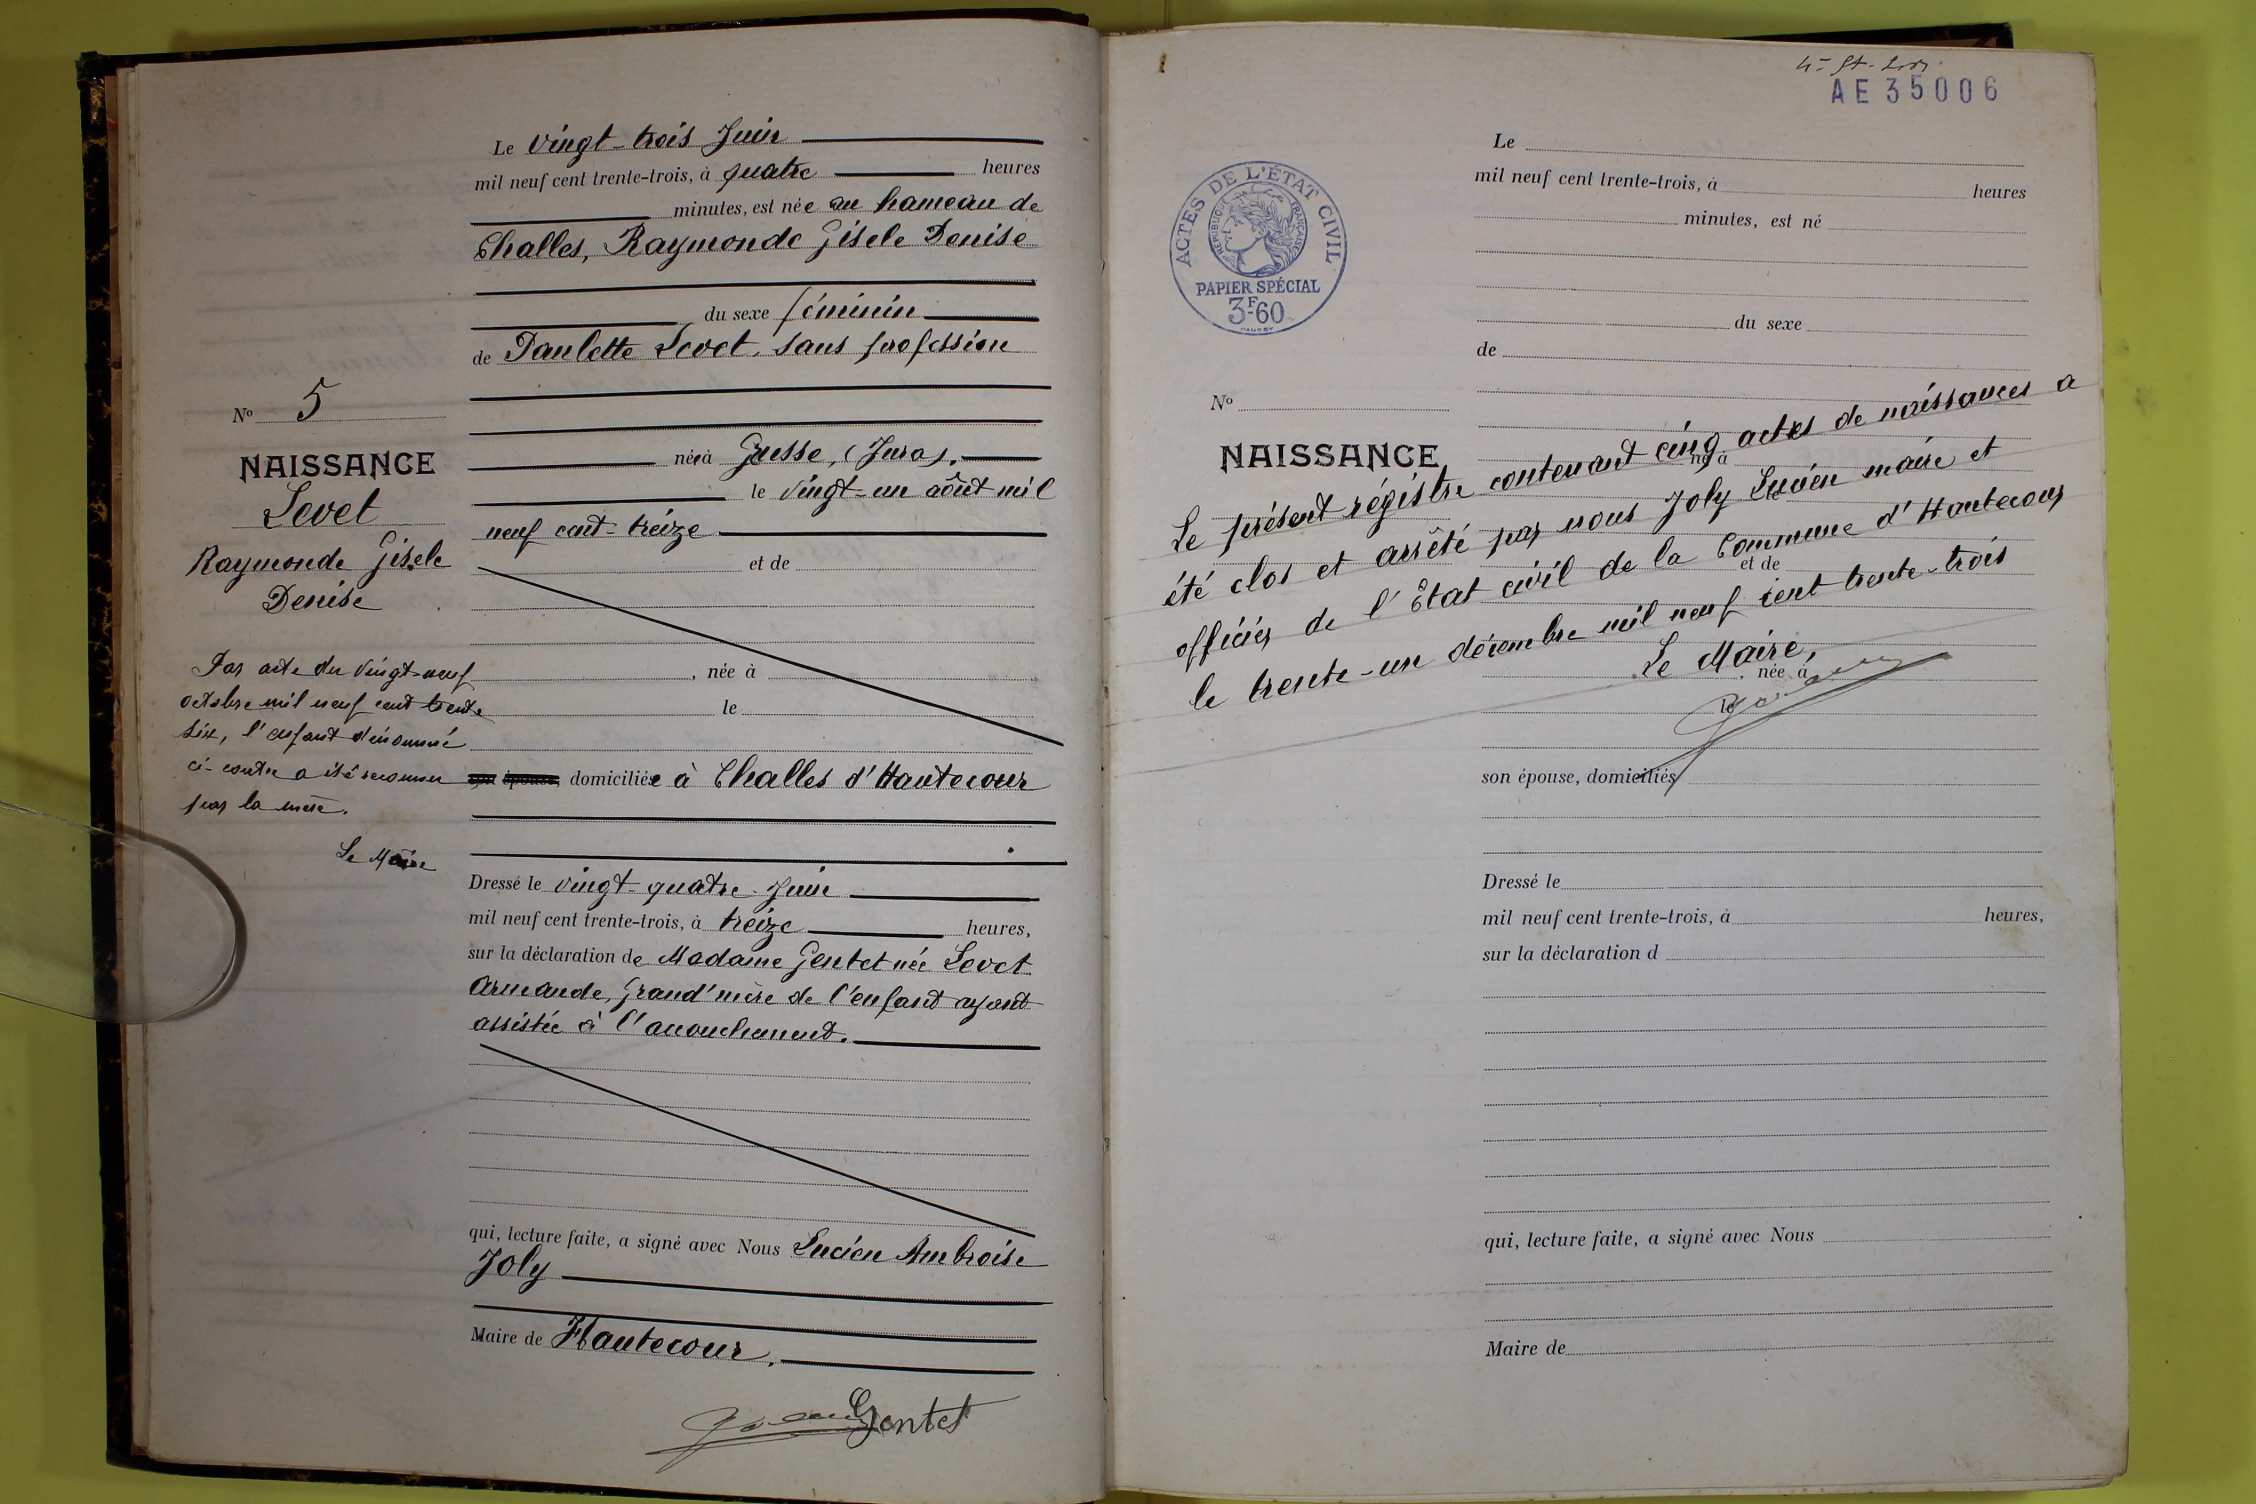 Le vingt-trois Juin
mil neuf cent trente-trois, à quatre heures
minutes, est née au hameau de
Challes, Raymonde Gisele Denise
du sexe féminin
de Paulette Levet, sans profession
née à Gusse, (Jura),
le vingt-un août mil
neuf cent-treize
et de
, née à
le
domiciliée à Challes d'Hautecour
Dressé le vingt-quatre Juin
mil neuf cent trente-trois, à treize heures,
sur la déclaration de Madame Gentet née Levet
Armande, Grand'mère de l'enfant ayant
assistée à l'accouchement.
qui, lecture faite, a signé avec Nous Lucien Ambroise
Joly
Maire de Hautecour.
Gentet
No 5
NAISSANCE
Levet
Raymonde Gisele
Denise
Par acte du vingt-neuf
octobre mil neuf cent trente
six, l'enfant dénommé
ci-contre a été reconnu
par la mère.
Le Maire
AE 35006
ACTES DE L'ÉTAT CIVIL
RÉPUBLIQUE FRANÇAISE
PAPIER SPÉCIAL
3F60
Le
mil neuf cent trente-trois, à heures
minutes, est né
du sexe
de
No
NAISSANCE
né à
Le présent régistre contenant cinq actes de naissances a
été clos et arrêté par nous Joly Lucien maire et
officier de l'Etat civil de la Commune d'Hautecour
le trente-un décembre mil neuf cent trente-trois
Le Maire,
le
et de
née à
le
son épouse, domiciliés
Dressé le
mil neuf cent trente-trois, à heures,
sur la déclaration d
qui, lecture faite, a signé avec Nous
Maire de